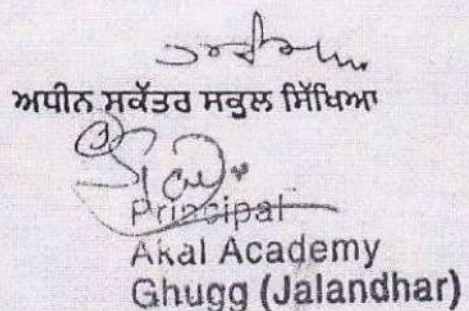 ਅਧੀਨ ਸਕੱਤਰ ਸਕੂਲ ਸਿੱਖਿਆ
Principal
Akal Academy
Ghugg (Jalandhar)